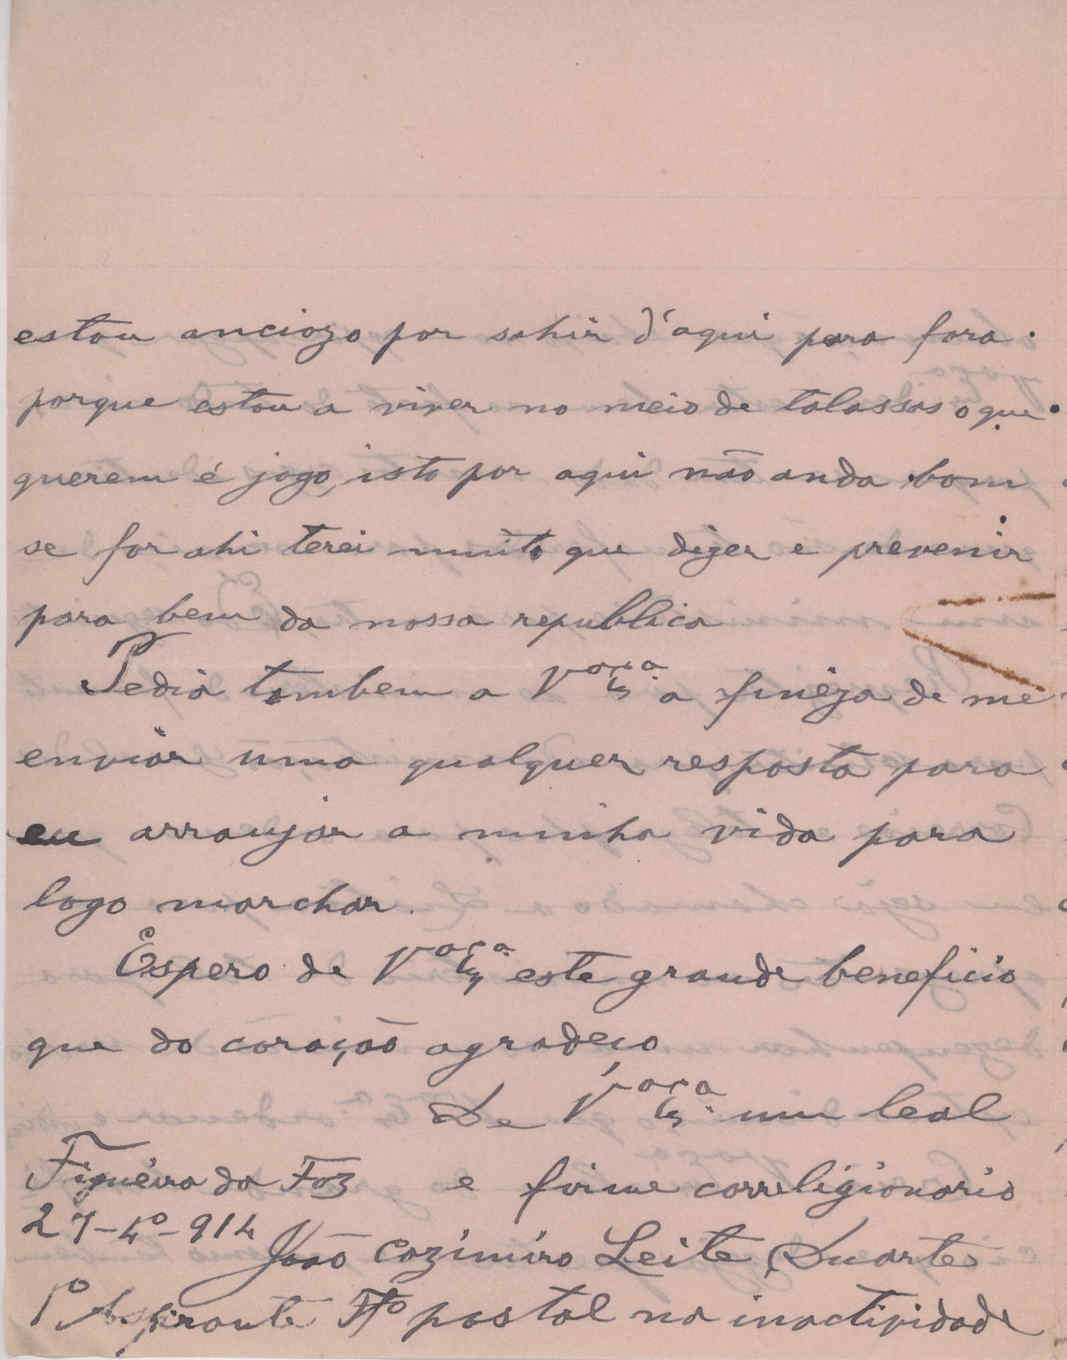 estou anciozo por sahir d'aqui para fora.
porque estou a viver no meio de talassas o que
querem é jogo, isto por aqui não anda bom
se for ahi terei muito que dizer e prevenir
para bem da nossa republica
Pedia tambem a V.oça Ex.ª a finêza de me
enviar uma qualquer resposta para
eu arranjar a minha vida para
logo marchar.
Espero de V.oça Ex.ª este grande beneficio
que do coração agradeço
De V.oça Ex.ª um leal
Figueira da Foz e firme correligionario
27-4º-914
João Cazimiro Leite Duarte
1º Aspirante postal na inactividade